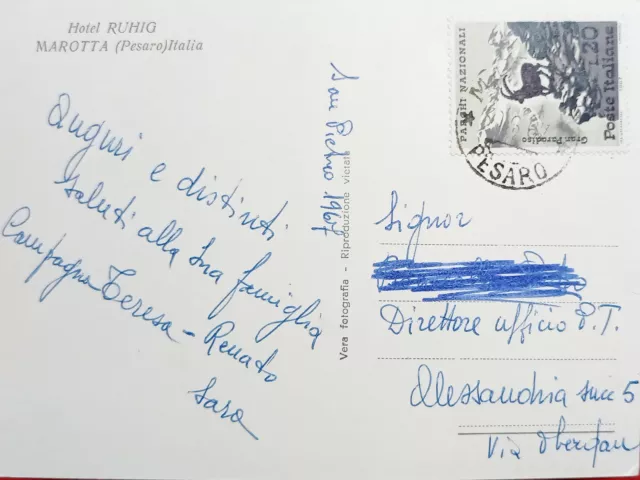 Hotel RUHIG
MAROTTA (Pesaro) Italia
Auguri e distinti
saluti alla Sua famiglia
Campagna Teresa - Renato
Sara
San Pietro 1967
Vera fotografia - Riproduzione vietata
PARCHI NAZIONALI
Gran Paradiso
L.20
Poste Italiane
PESARO
Signor
Direttore ufficio P.T.
Alessandria succ 5
Via Oberdan